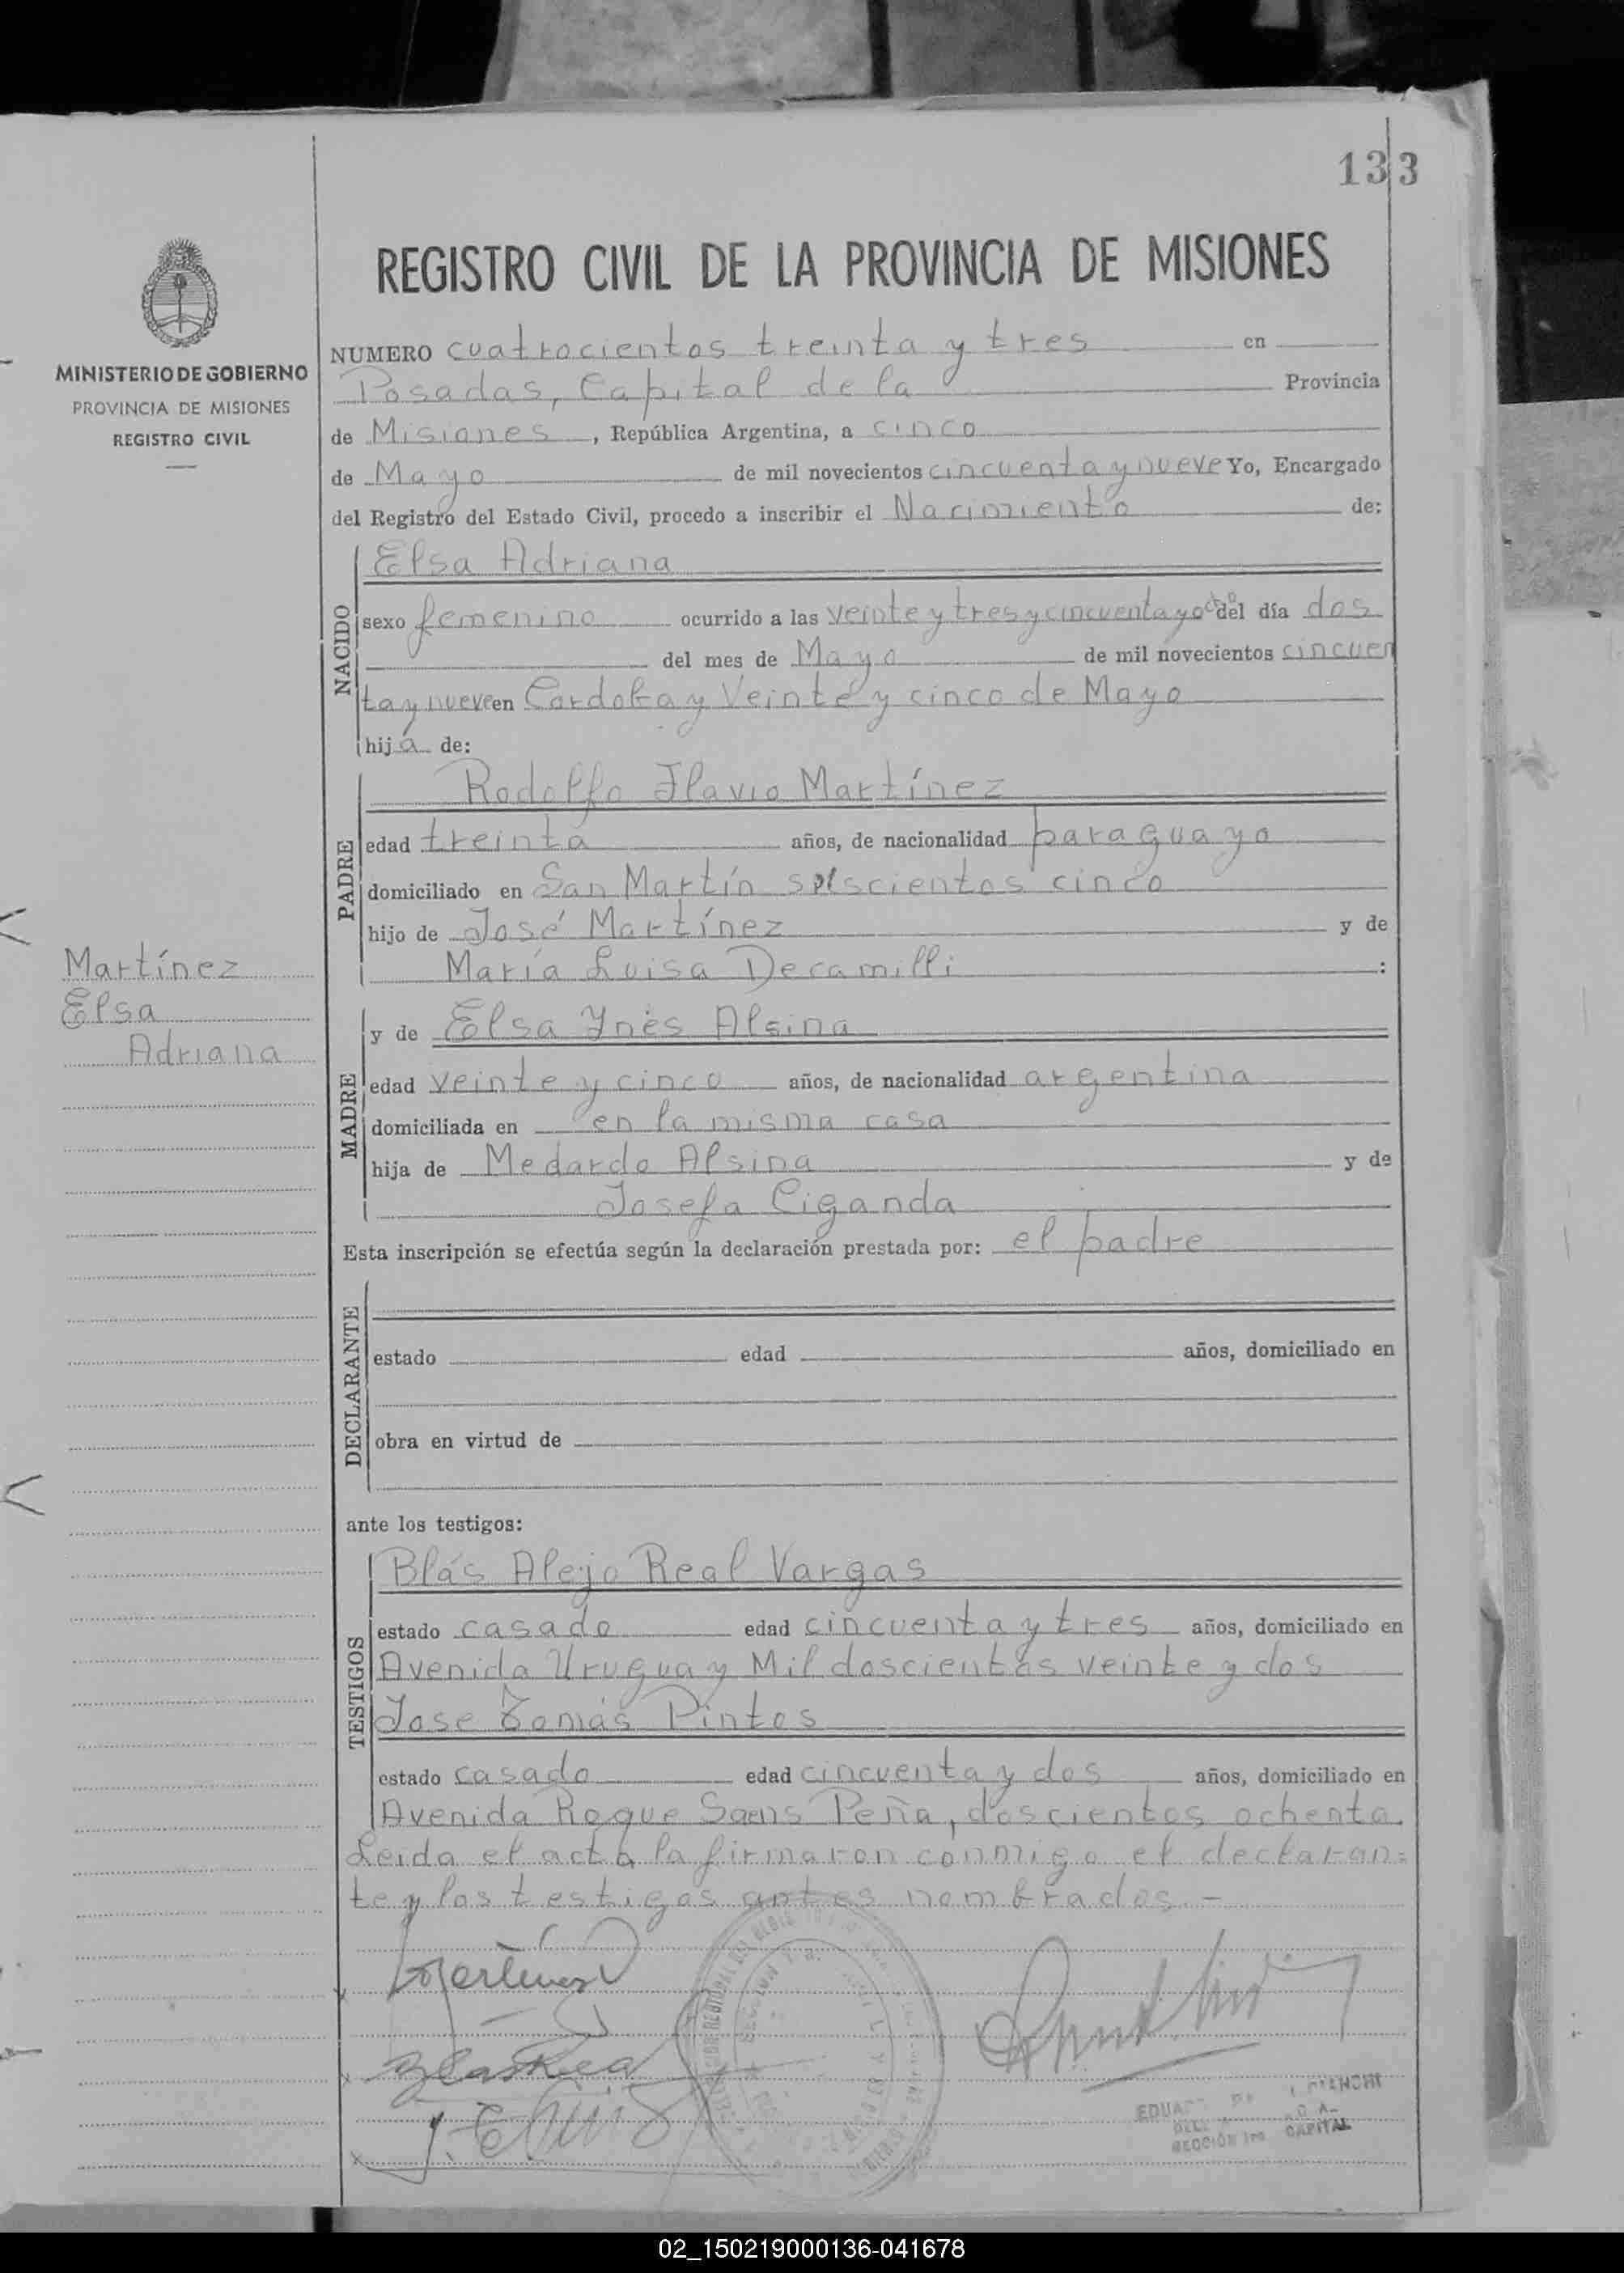 133
REGISTRO CIVIL DE LA PROVINCIA DE MISIONES
MINISTERIO DE GOBIERNO
PROVINCIA DE MISIONES
REGISTRO CIVIL
NUMERO cuatrocientos treinta y tres en
Posadas, Capital de la Provincia
de Misiones, República Argentina, a cinco
de Mayo de mil novecientos cincuenta y nueve Yo, Encargado
del Registro del Estado Civil, procedo a inscribir el Nacimiento de:
NACIDO
Elsa Adriana
sexo femenino ocurrido a las veinte y tres y cincuenta y ocho del día dos
del mes de Mayo de mil novecientos cincuen
ta y nueve en Cordoba y Veinte y cinco de Mayo
hija de:
PADRE
Rodolfo Flavio Martínez
edad treinta años, de nacionalidad paraguayo
domiciliado en San Martín seiscientos cinco
hijo de José Martínez y de
María Luisa Decamilli :
Martínez
Elsa
Adriana
MADRE
y de Elsa Ynés Alsina
edad veinte y cinco años, de nacionalidad argentina
domiciliada en en la misma casa
hija de Medardo Alsina y de
Josefa Ciganda
Esta inscripción se efectúa según la declaración prestada por: el padre
DECLARANTE
estado edad años, domiciliado en
obra en virtud de
ante los testigos:
TESTIGOS
Blás Alejo Real Vargas
estado casado edad cincuenta y tres años, domiciliado en
Avenida Uruguay Mil doscientos veinte y dos
Jose Tomás Pintos
estado casado edad cincuenta y dos años, domiciliado en
Avenida Roque Saens Peña, doscientos ochenta.
Leida el acta la firmaron conmigo el declaran=
te y los testigos antes nombrados.-
Martínez
Blas Real
SECCIÓN 1ra CAPITAL
02_150219000136-041678